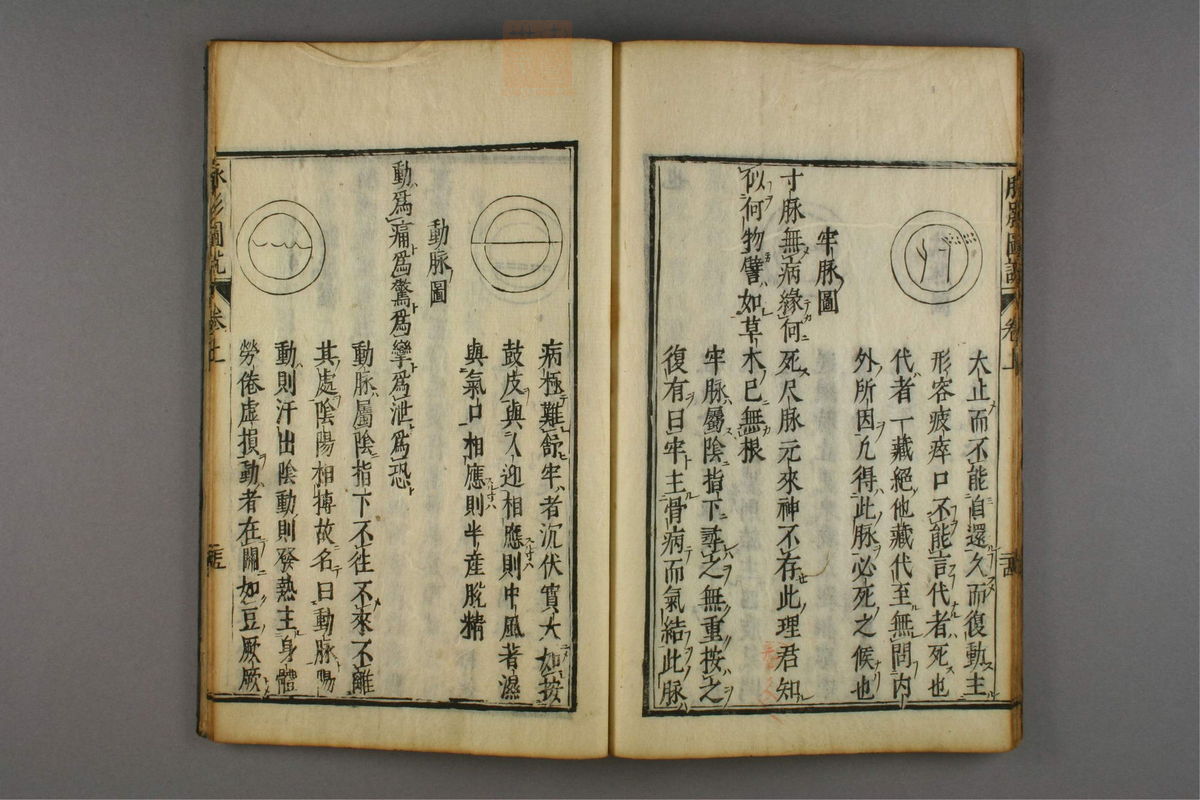 脉影圖說 卷上
太止而不能自還久而復動主
形容疲瘁口不能言代者死也
代者一藏絕他藏代至無問内
外所因凢得此脉必死之候也
牢脉圖
寸脉無病緣何死尺脉元來神不存此理君知
似何物譬如草木已無根
牢脉屬陰指下尋之無重按之
復有曰牢主骨病而氣結此脉
病極難舒牢者沉伏實大如按
鼓皮與人迎相應則中風著濕
與氣口相應則半産脫精
動脉圖
動爲痛爲驚爲攣爲泄爲恐
動脉屬陰指下不往不來不離
其處陰陽相搏故名曰動脉陽
動則汗出陰動則發熱主身體
勞倦虚損動者在關如豆厥厥
脉影圖說 卷上